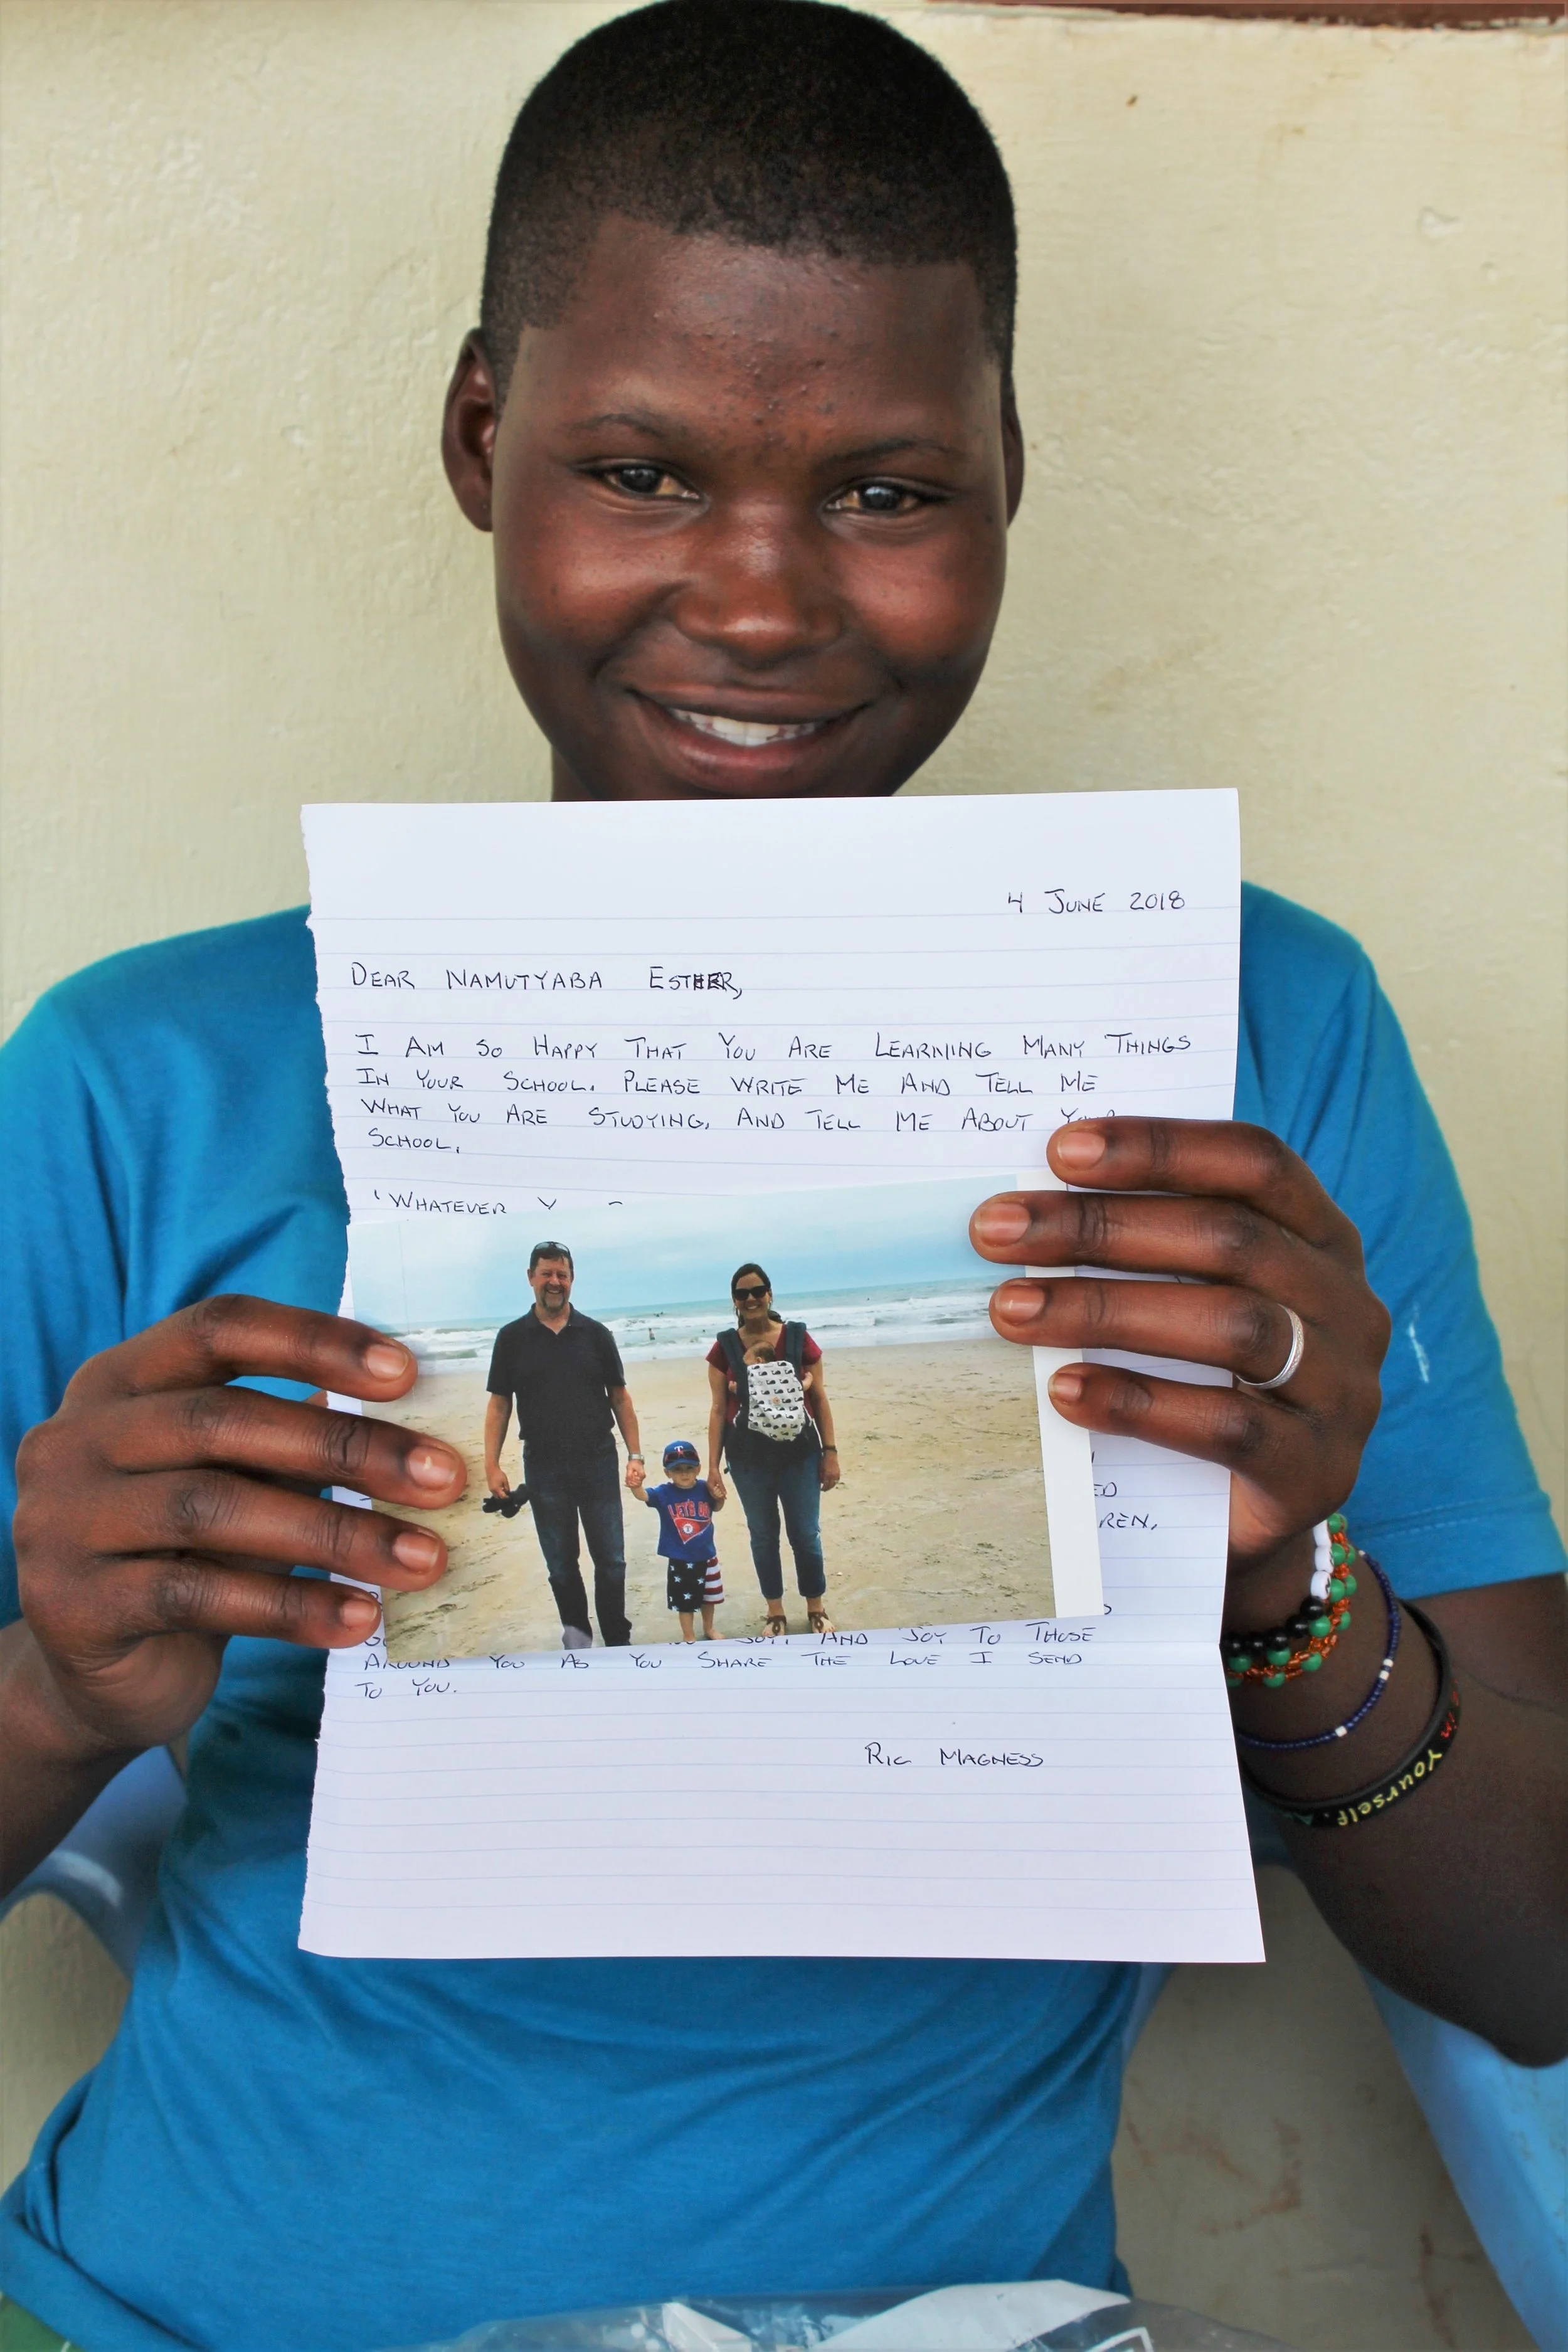 4 JUNE 2018
DEAR NAMUTYABA ESTHER,
I AM SO HAPPY THAT YOU ARE LEARNING MANY THINGS
IN YOUR SCHOOL. PLEASE WRITE ME AND TELL ME
WHAT YOU ARE STUDYING, AND TELL ME ABOUT YOUR
SCHOOL.
'WHATEVER
LET'S GO
T
ED
REN.
JOY, AND JOY TO THOSE
AROUND YOU AS YOU SHARE THE LOVE I SEND
TO YOU.
RIC MAGNESS
in Yourself.